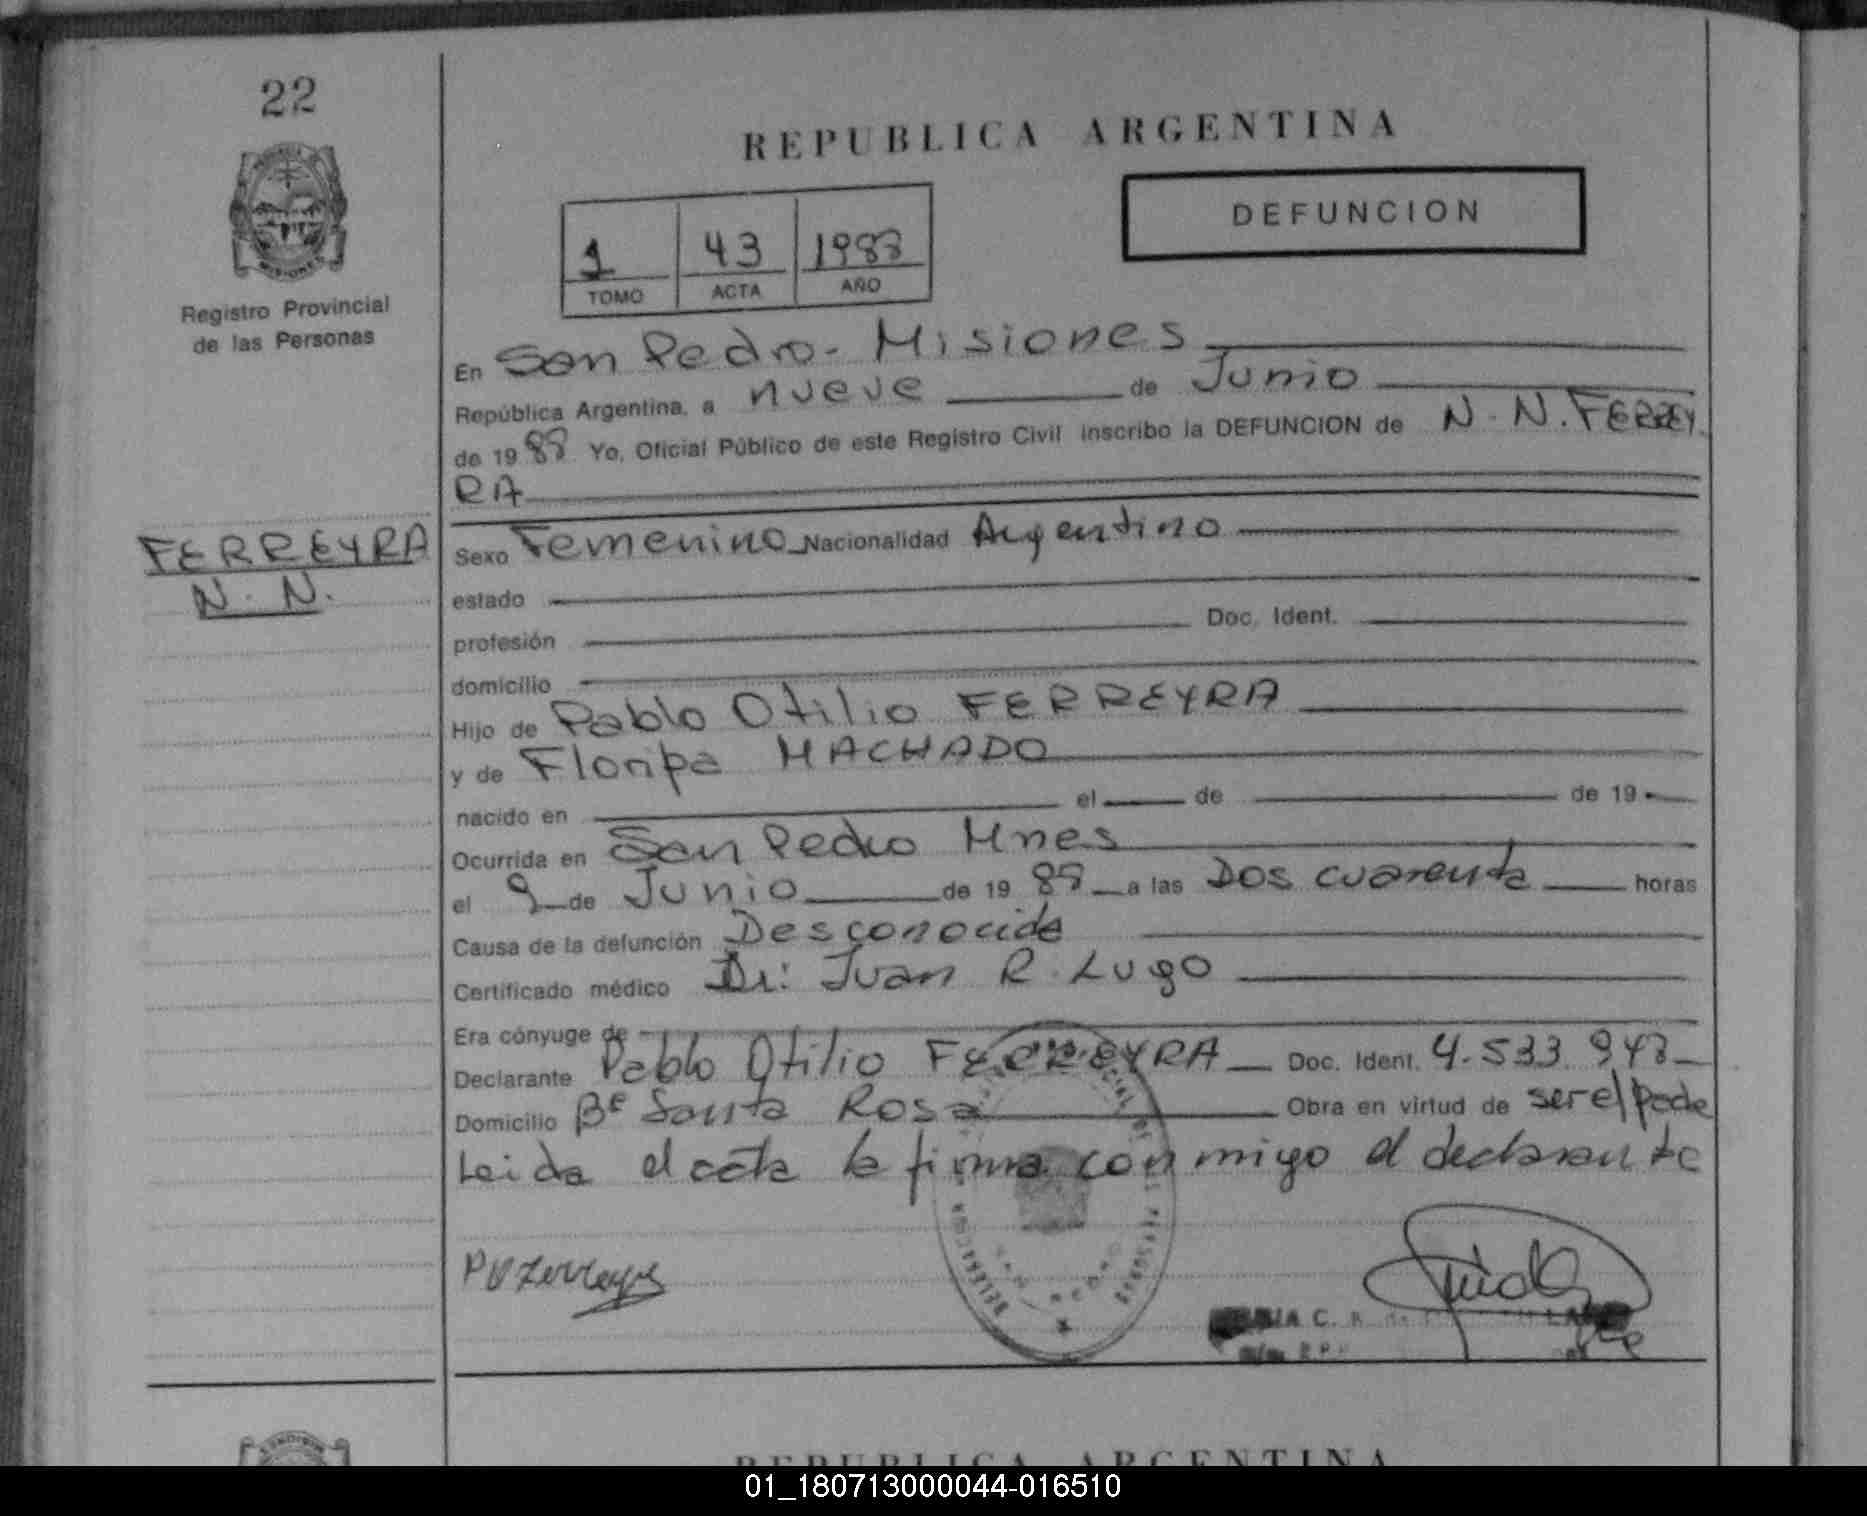 22
REPUBLICA ARGENTINA
DEFUNCION
1 43 1988
TOMO ACTA AÑO
MISIONES
Registro Provincial
de las Personas
En San Pedro - Misiones
República Argentina, a nueve de Junio
de 19 88 Yo, Oficial Público de este Registro Civil inscribo la DEFUNCION de N. N. FERREY
RA
FERREYRA
N. N.
Sexo Femenino Nacionalidad Argentino
estado
profesión Doc. Ident.
domicilio
Hijo de Pablo Otilio FERREYRA
y de Floripa MACHADO
nacido en el de de 19
Ocurrida en San Pedro Mnes
el 9 de Junio de 19 88 a las Dos cuarenta horas
Causa de la defunción Desconocida
Certificado médico Dr: Juan R. Lugo
Era cónyuge de
Declarante Pablo Otilio FERREYRA Doc. Ident. 4.533.943
Domicilio Bº Santa Rosa Obra en virtud de ser el pade
Leida el acta la firma conmigo el declarante
PO Ferreyra
DELEGACION
PERSONAS
C.
REPUBLICA ARGENTINA
01_180713000044-016510